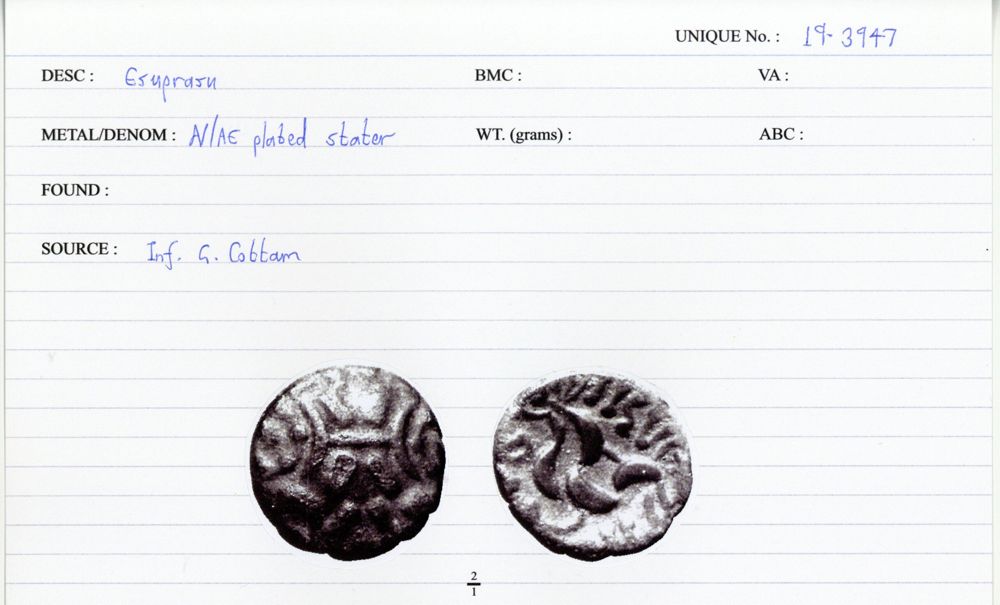 UNIQUE No. : 19-3947
DESC : Esuprasu BMC : VA :
METAL/DENOM : AV/AE plated stater WT. (grams) : ABC :
FOUND :
SOURCE : Inf. G. Cottam
2
1